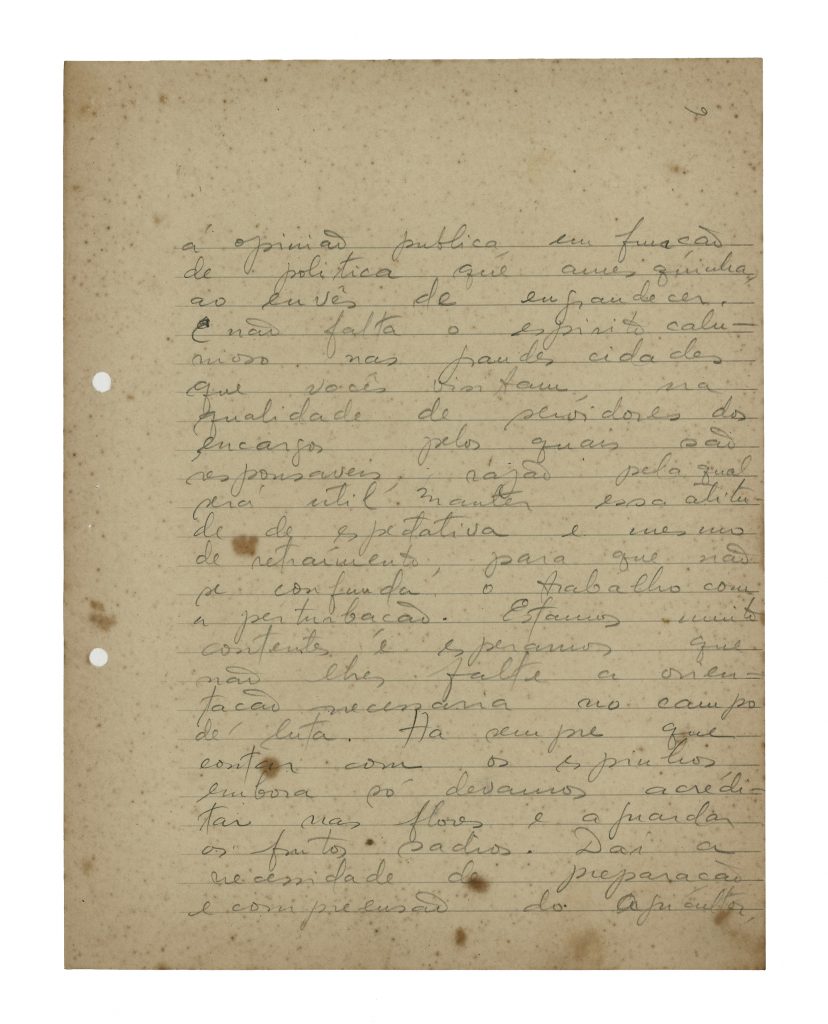 6
á opinião publica em função
de politica que amesquinha,
ao envês de engrandecer.
E não falta o espirito calu=
nioso nas grandes cidades
que vocês visitam na
qualidade de servidores dos
encargos pelos quais são
responsaveis, razão pela qual
será util manter essa atitu-
de de espetativa e mesmo
de retraimento, para que não
se confunda o trabalho com
a perturbacão. Estamos muito
contentes e esperamos que
não lhes falte a orien=
tacão necessaria no campo
de luta. Ha sempre que
contar com os espinhos
embora só devamos acredi-
tar nas flores e aguardar
os frutos sadios. Daí a
necessidade de preparação
e compreensão do agricultor,